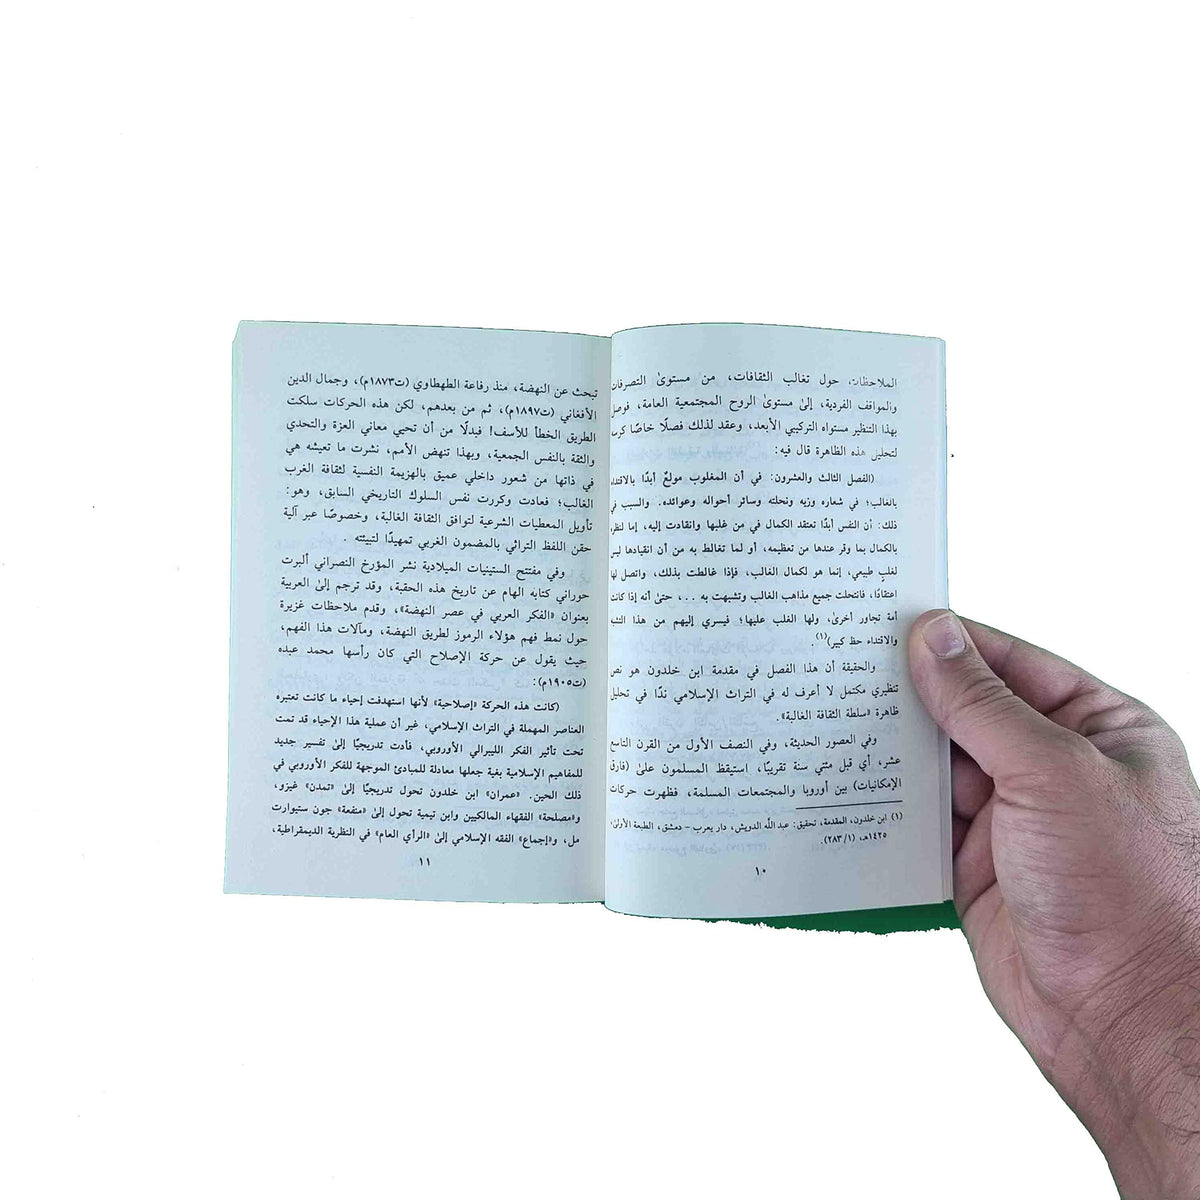 الملاحظات حول تغالب الثقافات، من مستوىٰ التصرفات
والمواقف الفردية، إلىٰ مستوىٰ الروح المجتمعية العامة، فوصل
بهذا التنظير مستواه التركيبي الأبعد، وعقد لذلك فصلًا خاصًا كرسه
لتحليل هذه الظاهرة قال فيه:
(الفصل الثالث والعشرون: في أن المغلوب مولعٌ أبدًا بالاقتداء
بالغالب؛ في شعاره وزيه ونحلته وسائر أحواله وعوائده. والسبب في
ذلك: أن النفس أبدًا تعتقد الكمال في من غلبها وانقادت إليه، إما لنظره
بالكمال بما وقر عندها من تعظيمه، أو لما تغالط به من أن انقيادها ليس
لغلب طبيعي، إنما هو لكمال الغالب، فإذا غالطت بذلك، واتصل لها
اعتقادًا، فانتحلت جميع مذاهب الغالب وتشبهت به ..، حتىٰ أنه إذا كانت
أمة تجاور أخرىٰ، ولها الغلب عليها؛ فيسري إليهم من هذا التشبه
والاقتداء حظ كبير)(١).
والحقيقة أن هذا الفصل في مقدمة ابن خلدون هو نص
تنظيري مكتمل لا أعرف له في التراث الإسلامي ندًا في تحليل
ظاهرة «سلطة الثقافة الغالبة».
وفي العصور الحديثة، وفي النصف الأول من القرن التاسع
عشر، أي قبل مئتي سنة تقريبًا، استيقظ المسلمون علىٰ (فارق
الإمكانيات) بين أوروبا والمجتمعات المسلمة، فظهرت حركات
(١) ابن خلدون، المقدمة، تحقيق: عبد الله الدرويش، دار يعرب – دمشق، الطبعة الأولىٰ،
١٤٢٥هـ، (١/ ٢٨٣).
١٠
تبحث عن النهضة، منذ رفاعة الطهطاوي (ت١٨٧٣م)، وجمال الدين
الأفغاني (ت١٨٩٧م)، ثم من بعدهم، لكن هذه الحركات سلكت
الطريق الخطأ للأسف! فبدلًا من أن تحيي معاني العزة والتحدي
والثقة بالنفس الجمعية، وبهذا تنهض الأمم، نشرت ما تعيشه هي
في ذاتها من شعور داخلي عميق بالهزيمة النفسية لثقافة الغرب
الغالب؛ فعادت وكررت نفس السلوك التاريخي السابق، وهو:
تأويل المعطيات الشرعية لتوافق الثقافة الغالبة، وخصوصًا عبر آلية
حقن اللفظ التراثي بالمضمون الغربي تمهيدًا لتبيئته .
وفي مفتتح الستينيات الميلادية نشر المؤرخ النصراني ألبرت
حوراني كتابه الهام عن تاريخ هذه الحقبة، وقد ترجم إلىٰ العربية
بعنوان «الفكر العربي في عصر النهضة»، وقدم ملاحظات غزيرة
حول نمط فهم هؤلاء الرموز لطريق النهضة، ومآلات هذا الفهم،
حيث يقول عن حركة الإصلاح التي كان رأسها محمد عبده
(ت١٩٠٥م):
(كانت هذه الحركة «إصلاحية» لأنها استهدفت إحياء ما كانت تعتبره
العناصر المهملة في التراث الإسلامي، غير أن عملية هذا الإحياء قد تمت
تحت تأثير الفكر الليبرالي الأوروبي، فأدت تدريجيًا إلىٰ تفسير جديد
للمفاهيم الإسلامية بغية جعلها معادلة للمبادئ الموجهة للفكر الأوروبي في
ذلك الحين. «عمران» ابن خلدون تحول تدريجيًا إلىٰ «تمدن» غيزو،
و«مصلحة» الفقهاء المالكيين وابن تيمية تحول إلىٰ «منفعة» جون ستيوارت
مل، و«إجماع» الفقه الإسلامي إلىٰ «الرأي العام» في النظرية الديمقراطية،
١١